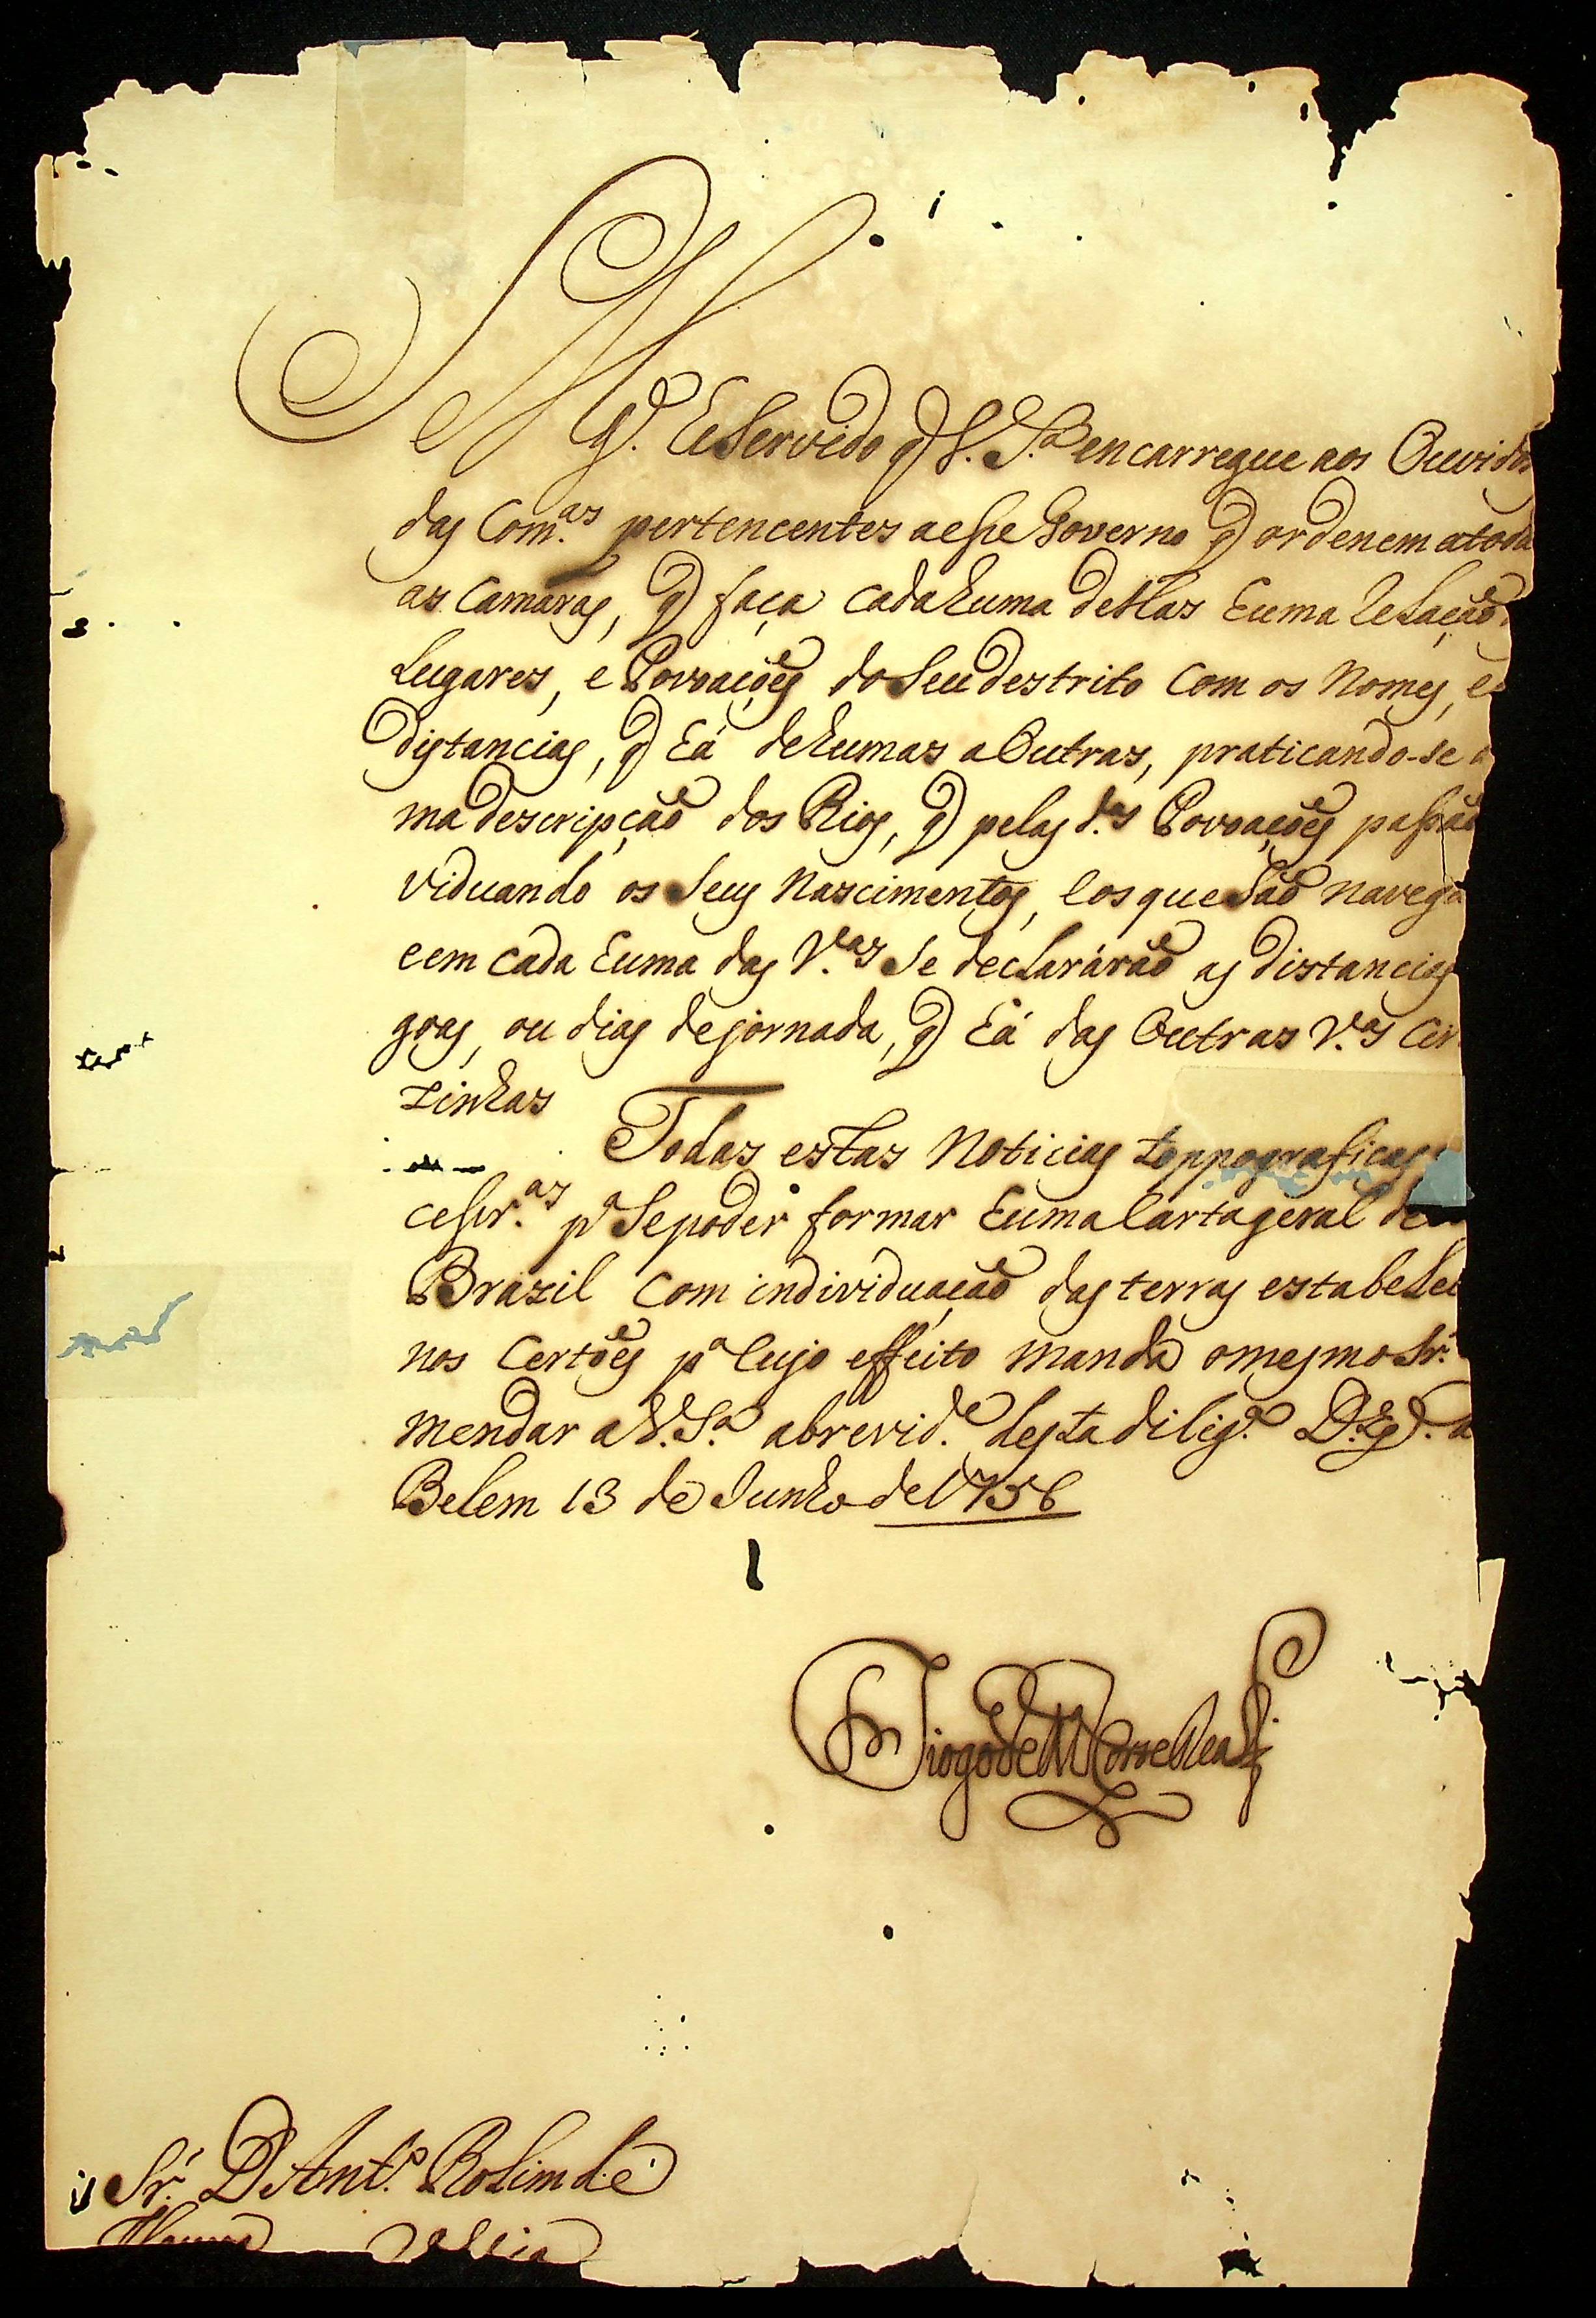 S Mg.de He Servido q̃ V. S.ª encarregue aos Ouvido
das Com.as pertencentes aesse Governo q̃ ordenem atoda
as Camaras, q̃ faça cadahuma dellas huma Relação
Lugares, e Povoações do Seu destrito Com os Nomes, e
distancias, q̃ há dehumas aOutras, praticando-se
ma descripção dos Rios, q̃ pelas d.as Povoações passão
viduando os Seus Nascimentos, eosque São navega
eem cada huma das V.as Se declarárão as distancias
goas, ou dias dejornada, q̃ há das Outras V.as Cir
zinhas
Todas estas Noticias toppograficas
cessr.as p.ª Sepoder formar huma Cartageral de
Brazil Com individuação dasterras estabeleci
nos Certões p.ª Cujo effeito manda omesmo Sr.
mendar aV.S.ª abrevid.e destadilig.ª D.s g.de a
Belem 13 de Junho de1756
Diogo de M.ca CorteReal
Sr. D. Ant.º Rolim de
Moura